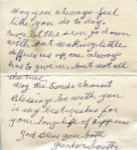 May you always feel
like you do to day.
never let the sun go down
with out making up
differences up, one always
has to give in, but not all
the time.
May the Lords choicest
Blessings be with you
is my best wishes for
your long life of happiness
God bless you both